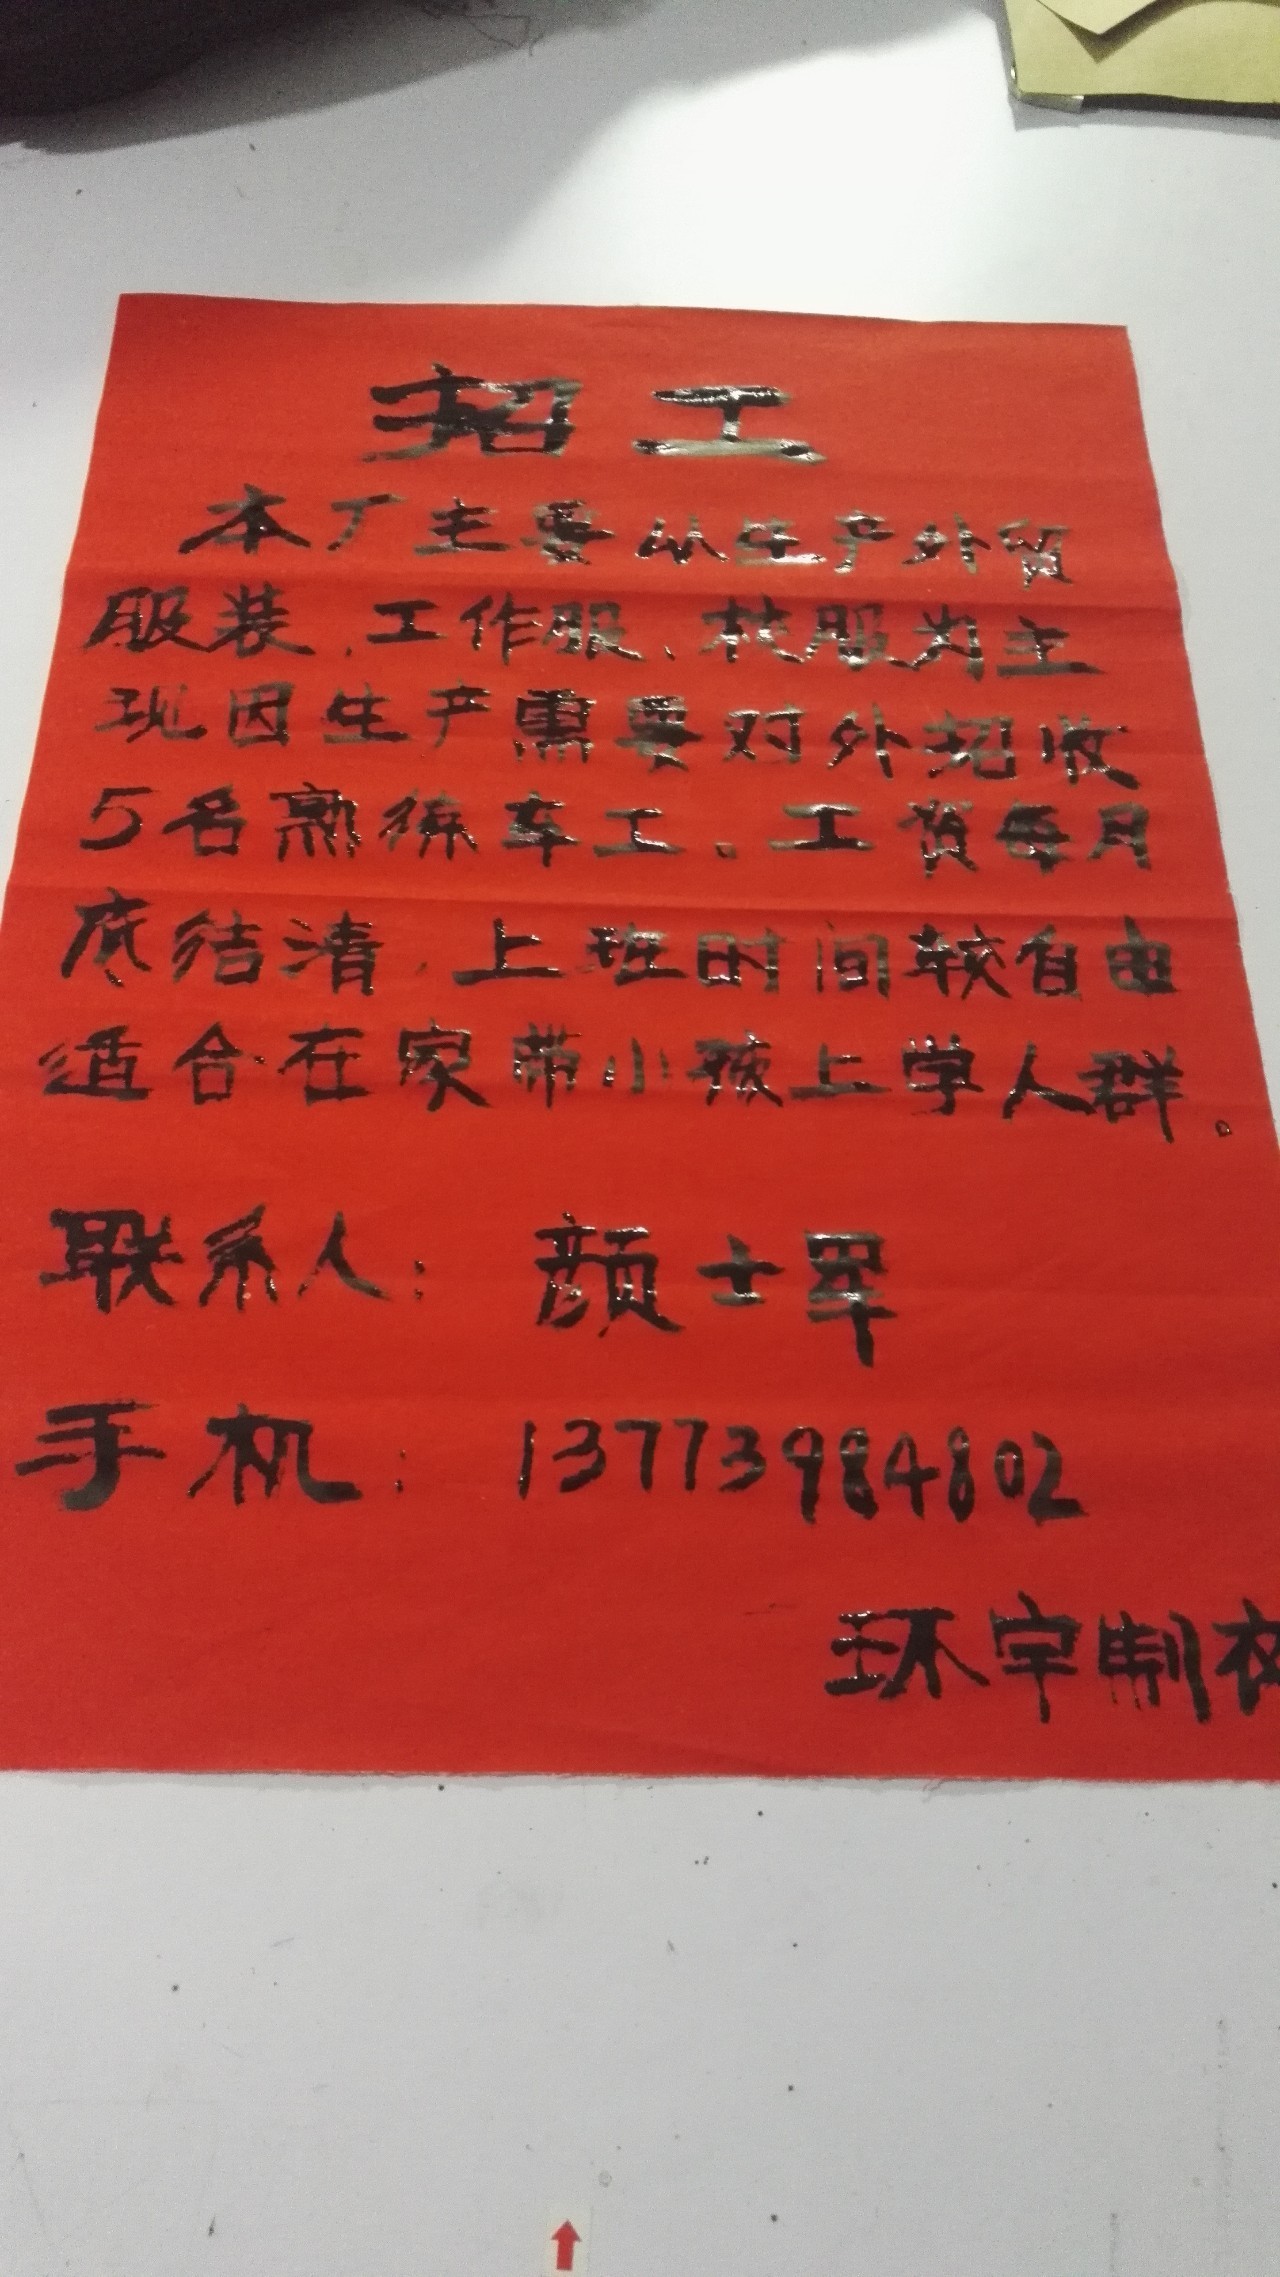 招工
本厂主要从生产外贸
服装、工作服、校服为主
现因生产需要对外招收
5名熟练车工。工资每月
底结清,上班时间较自由
适合在家带小孩上学人群。
联系人：颜士军
手机：13773984802
环宇制衣